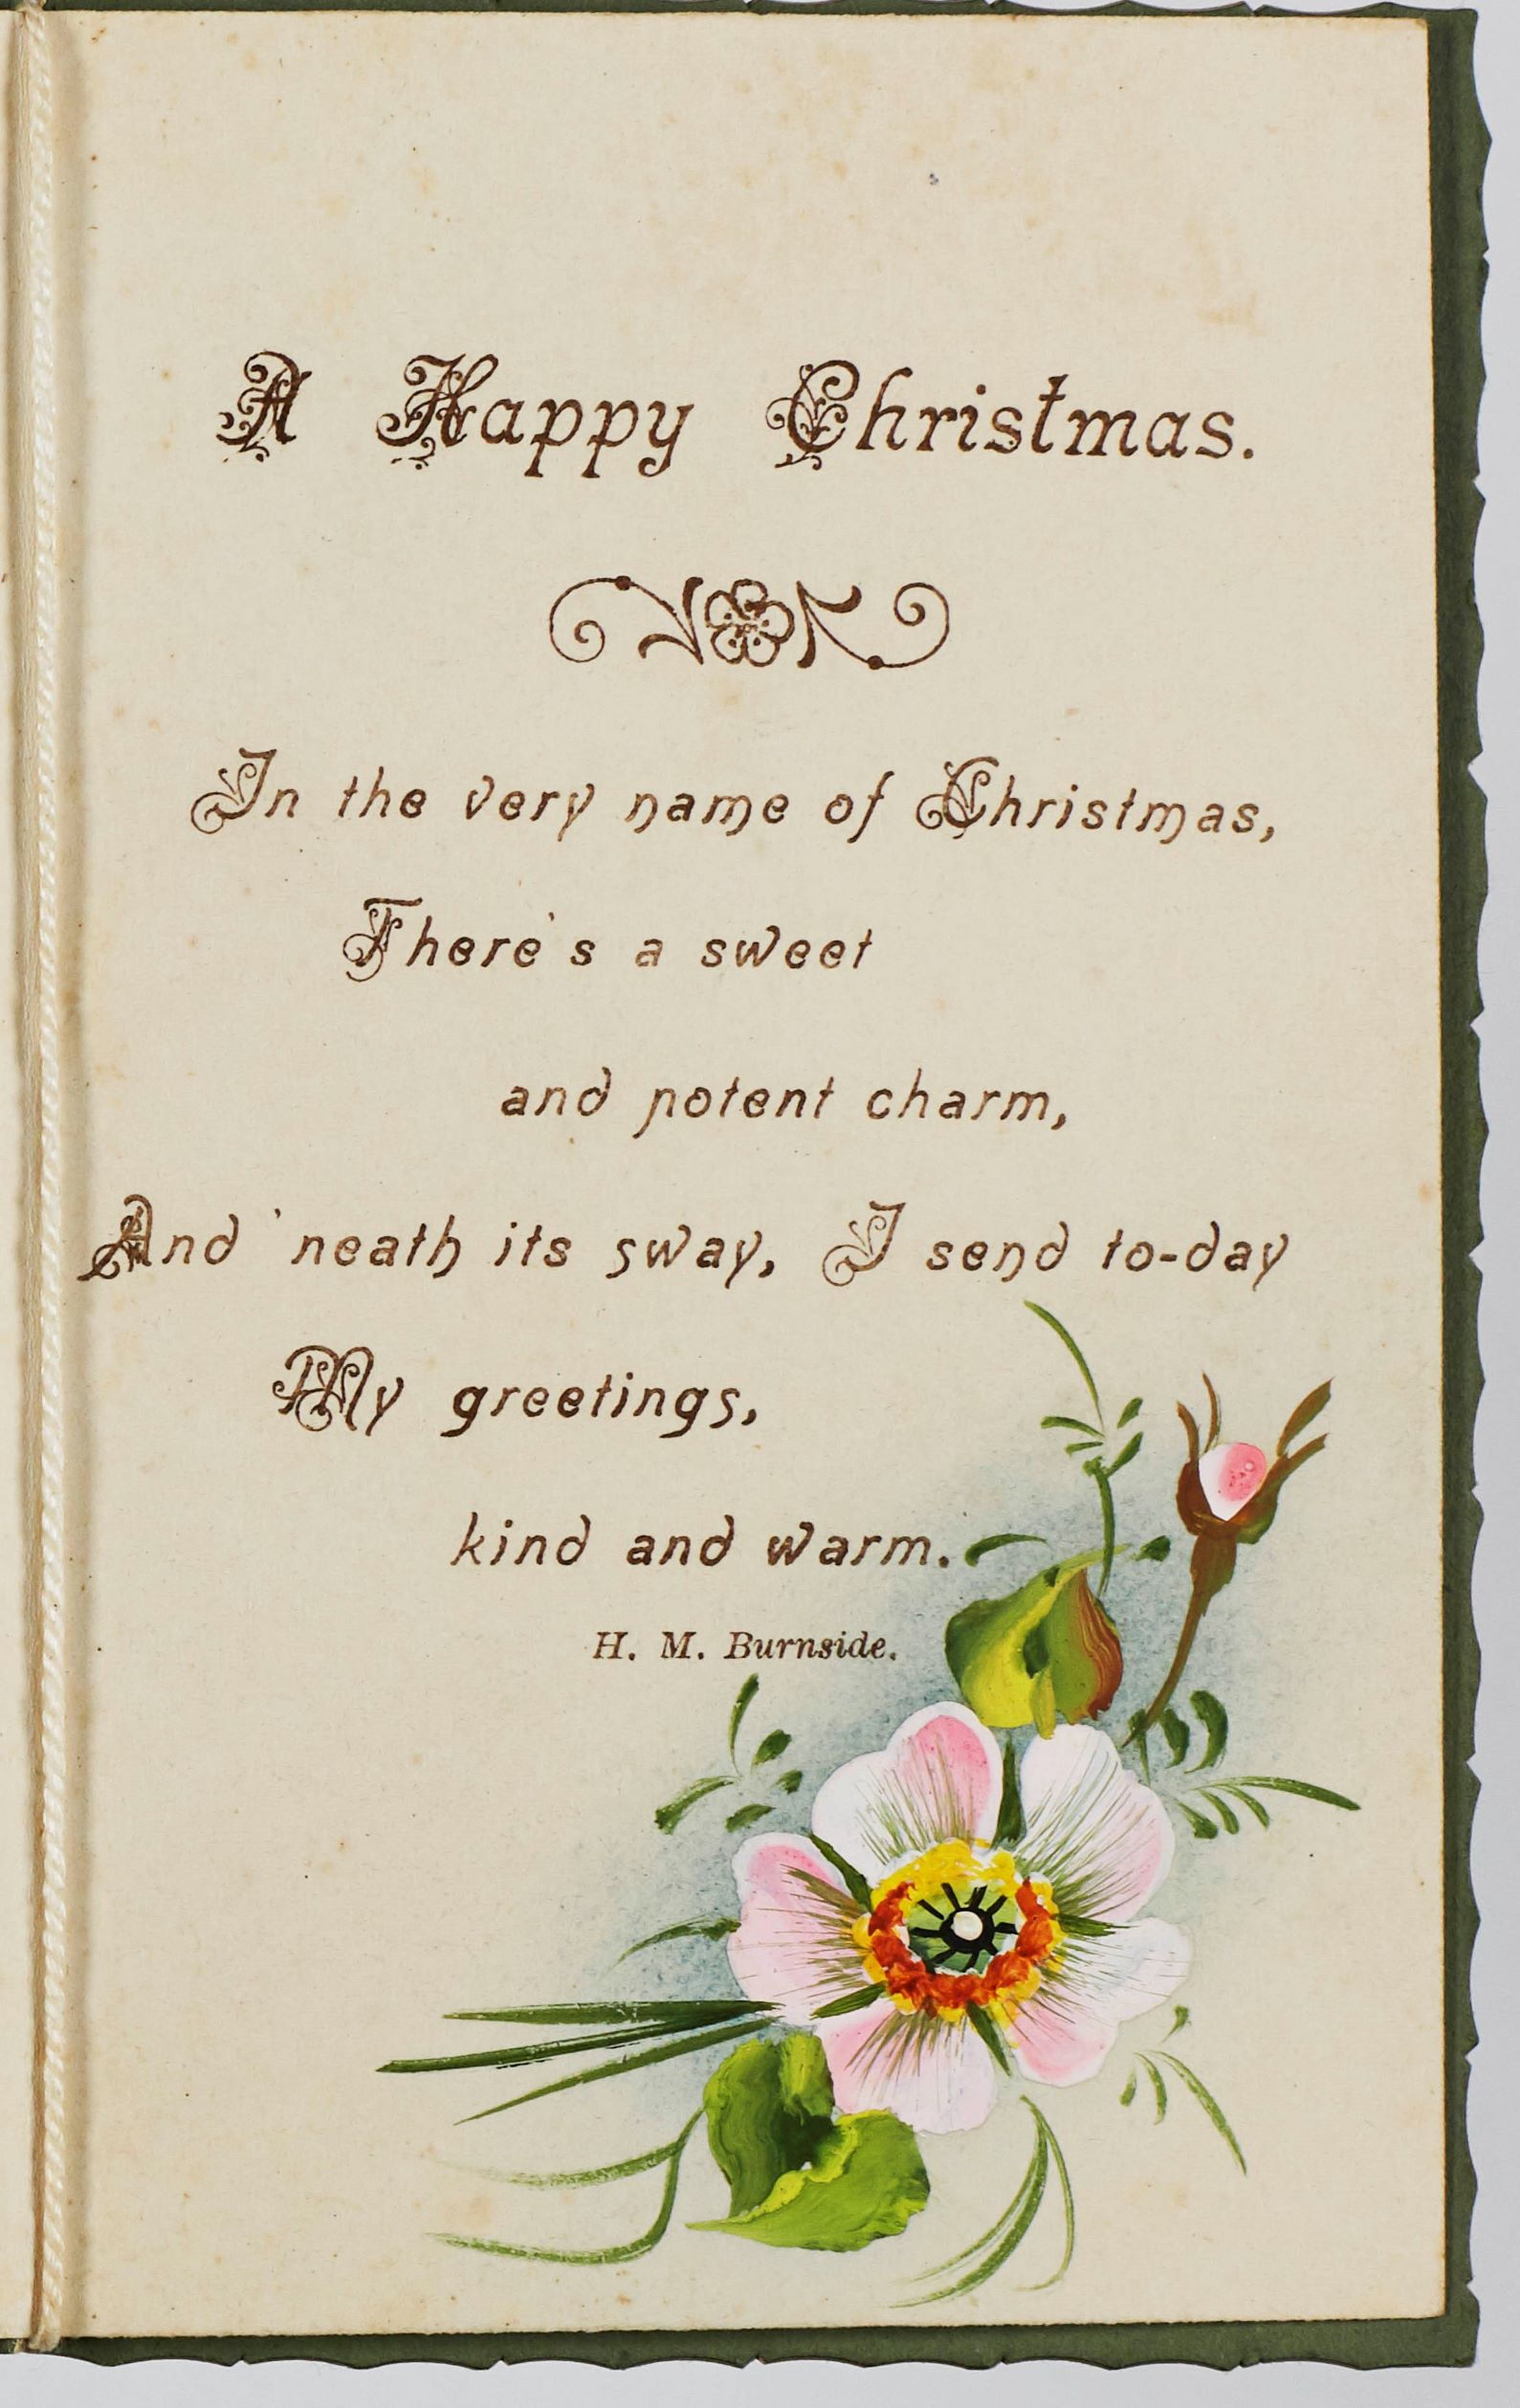 A Happy Christmas.
In the very name of Christmas,
There's a sweet
and potent charm,
And 'neath its sway, I send to-day
My greetings,
kind and warm.
H. M. Burnside.